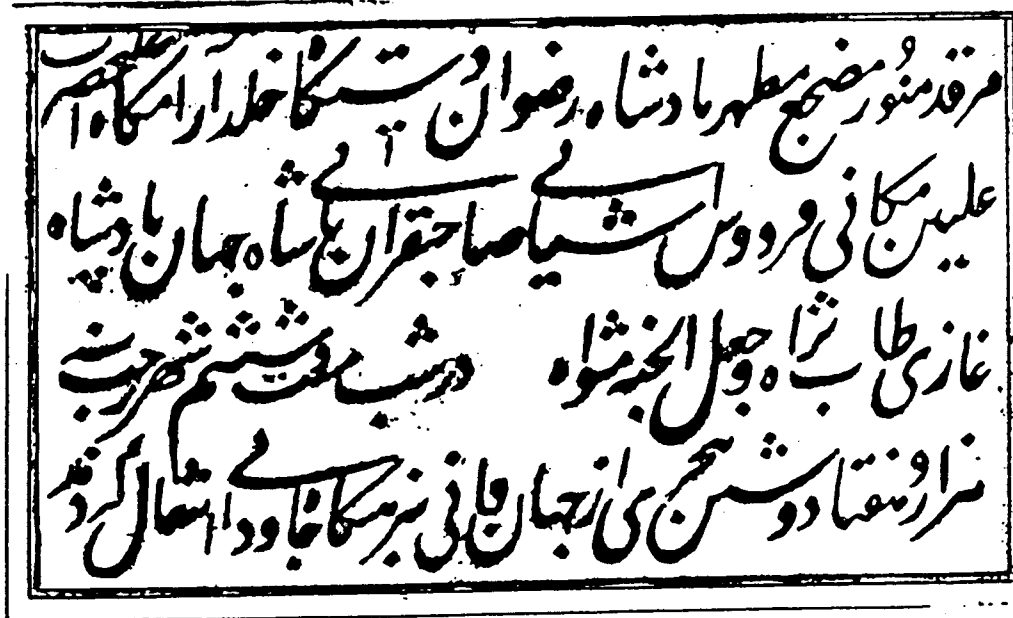 مرقد منور مضجع مطهر بادشاه رضوان دستگاه خلد آرامگاه اعلیحضرت
علیین مکانی فردوس آشیانی صاحبقران ثانی شاه جهان بادشاه
غازی طاب ثراه وجعل الجنه مثواه در شب بیست و ششم شهر رجب سنه
هزار و هفتاد و شش هجری از جهان فانی بنزهتگاه جاودانی انتقال کردند